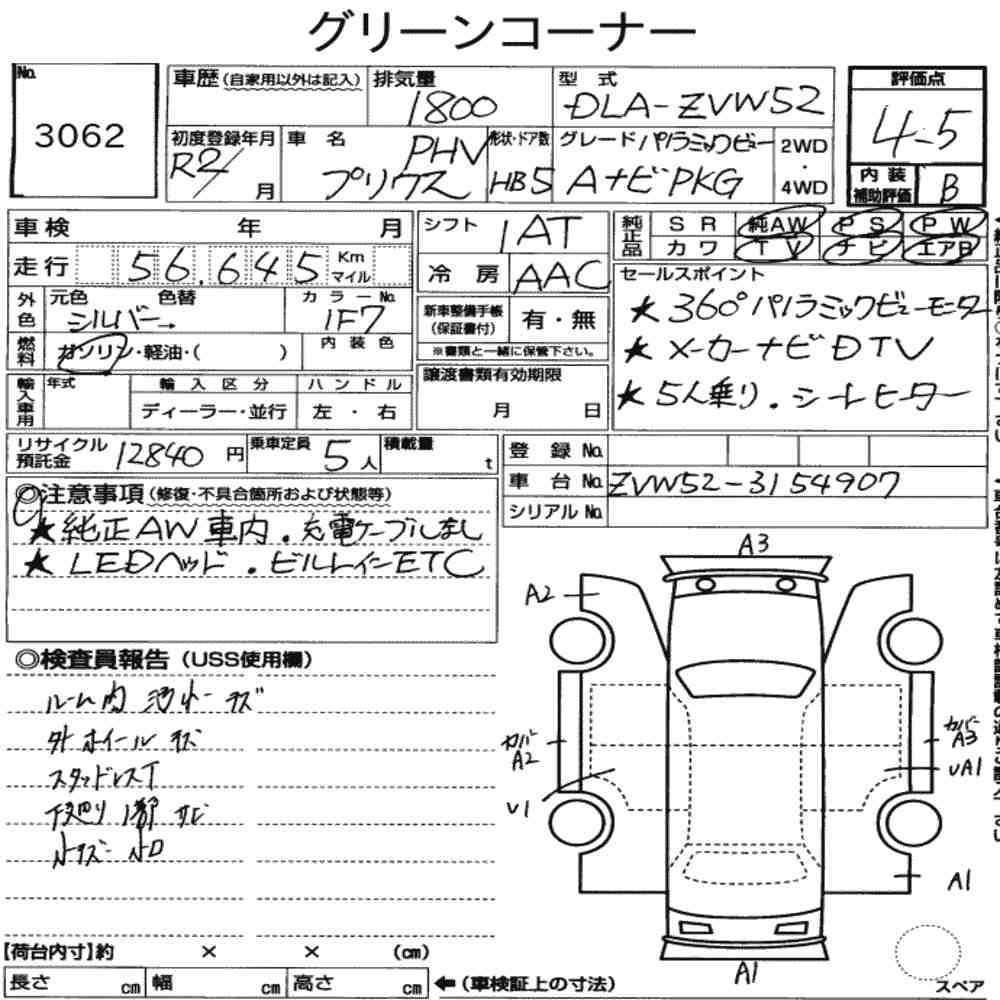 グリーンコーナー
No. 3062
車歴(自家用以外は記入) 排気量 1800 型式 DLA-ZVW52
初度登録年月 R2/ 月 車名 PHV プリウス 形状・ドア数 HB5 グレード パノラミックビュー AナビPKG 2WD・4WD
評価点 4-5
内装補助評価 B
車検 年 月 シフト IAT
純正品 SR 純AW PS PW
カワ TV ナビ エアB
走行 56.645 Km マイル 冷房 AAC
外色 元色 シルバー→ 色替 カラーNo. 1F7
燃料 ガソリン・軽油・( ) 内装色
新車整備手帳(保証書付) 有・無
※書類と一緒に保管下さい。
セールスポイント
★360°パノラミックビューモニター
★メーカーナビDTV
★5人乗り.シートヒーター
輸入車用 年式 輸入区分 ディーラー・並行 ハンドル 左・右
譲渡書類有効期限 月 日
リサイクル預託金 12840円 乗車定員 5人 積載量 t
登録No.
車台No. ZVW52-3154907
シリアルNo.
◎注意事項(修復・不具合箇所および状態等)
★純正AW車内.充電ケーブルなし
★LEDヘッド.ビルトインETC
◎検査員報告(USS使用欄)
ルーム内 キズ
外ホイールキズ
スタッドレスT
下廻り1部サビ
小キズ 小凹
A3
A2
カバーA2
カバーA3
UA1
U1
A1
A1
スペア
【荷台内寸】約 × × (cm)
長さ cm 幅 cm 高さ cm ←(車検証上の寸法)